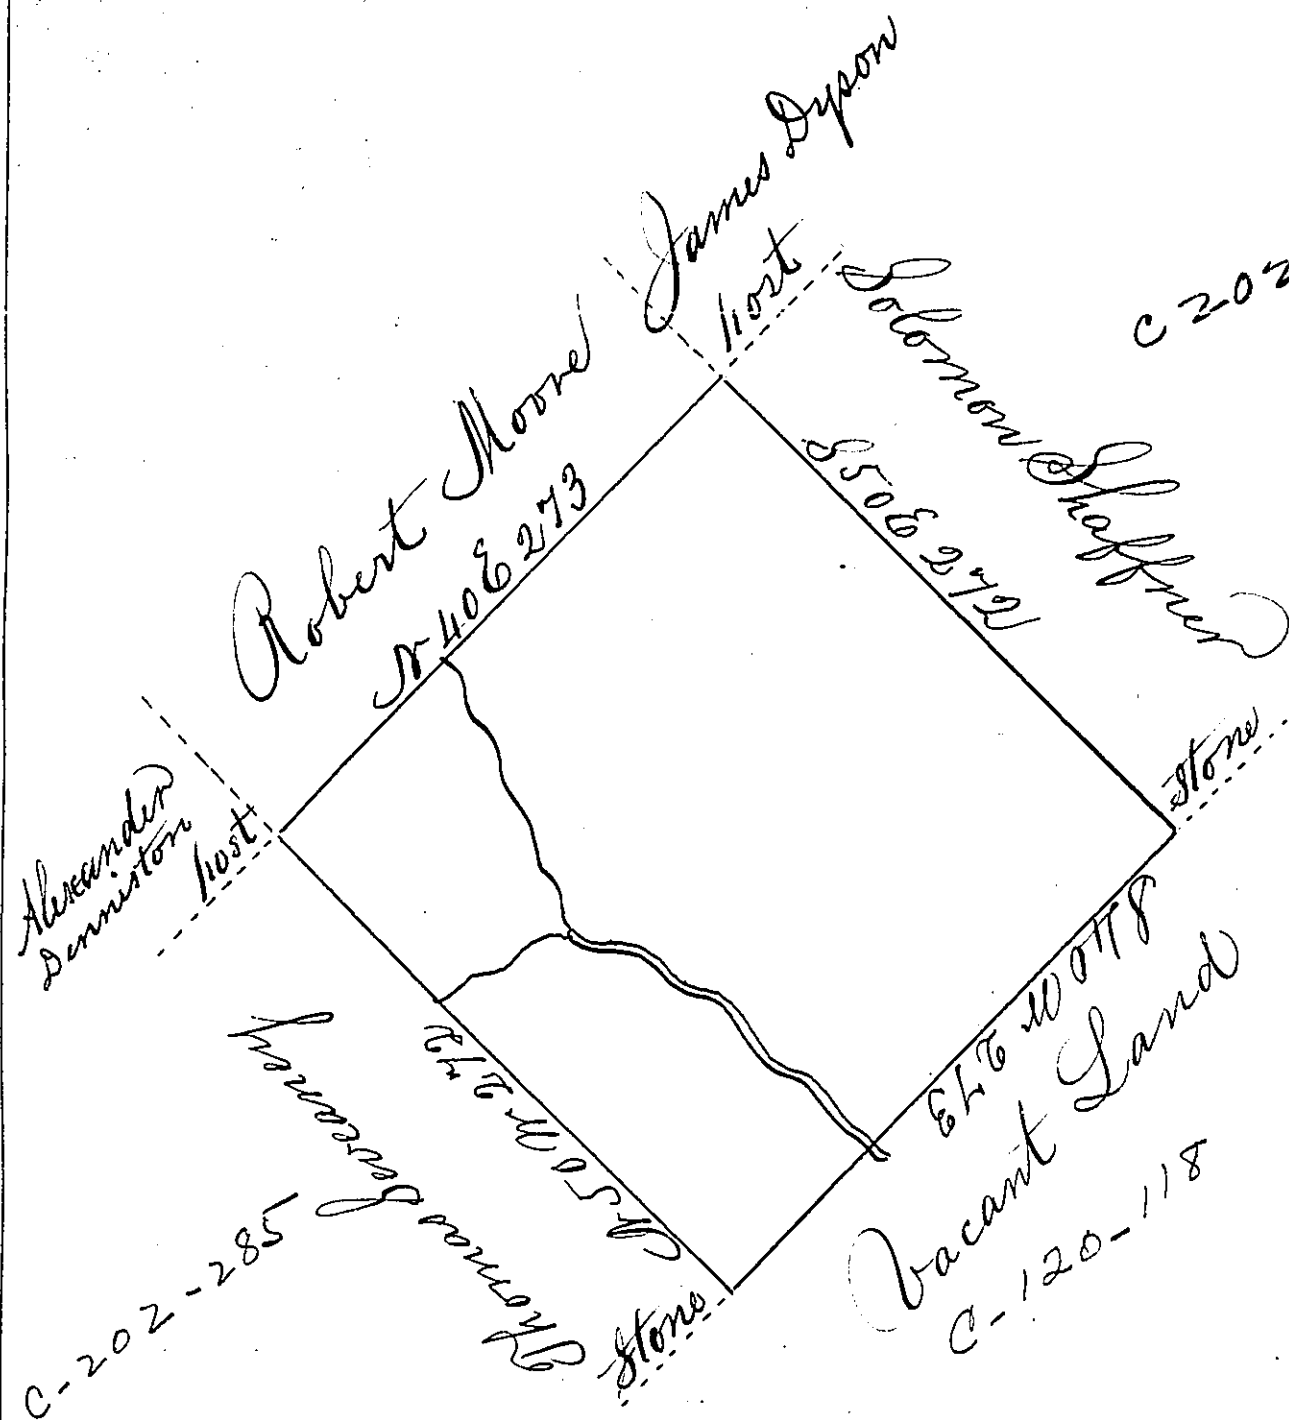 James Dyson
post
C 202
Solomon Shaffner
Robert Moore
N 40 E 273
S 50 E 272
Alexander
Denniston
post
Stone
S 40 W 273
Vacant Land
C-120-118
N 50 W 272
Thomas Sweaney
C-202-285
Stone